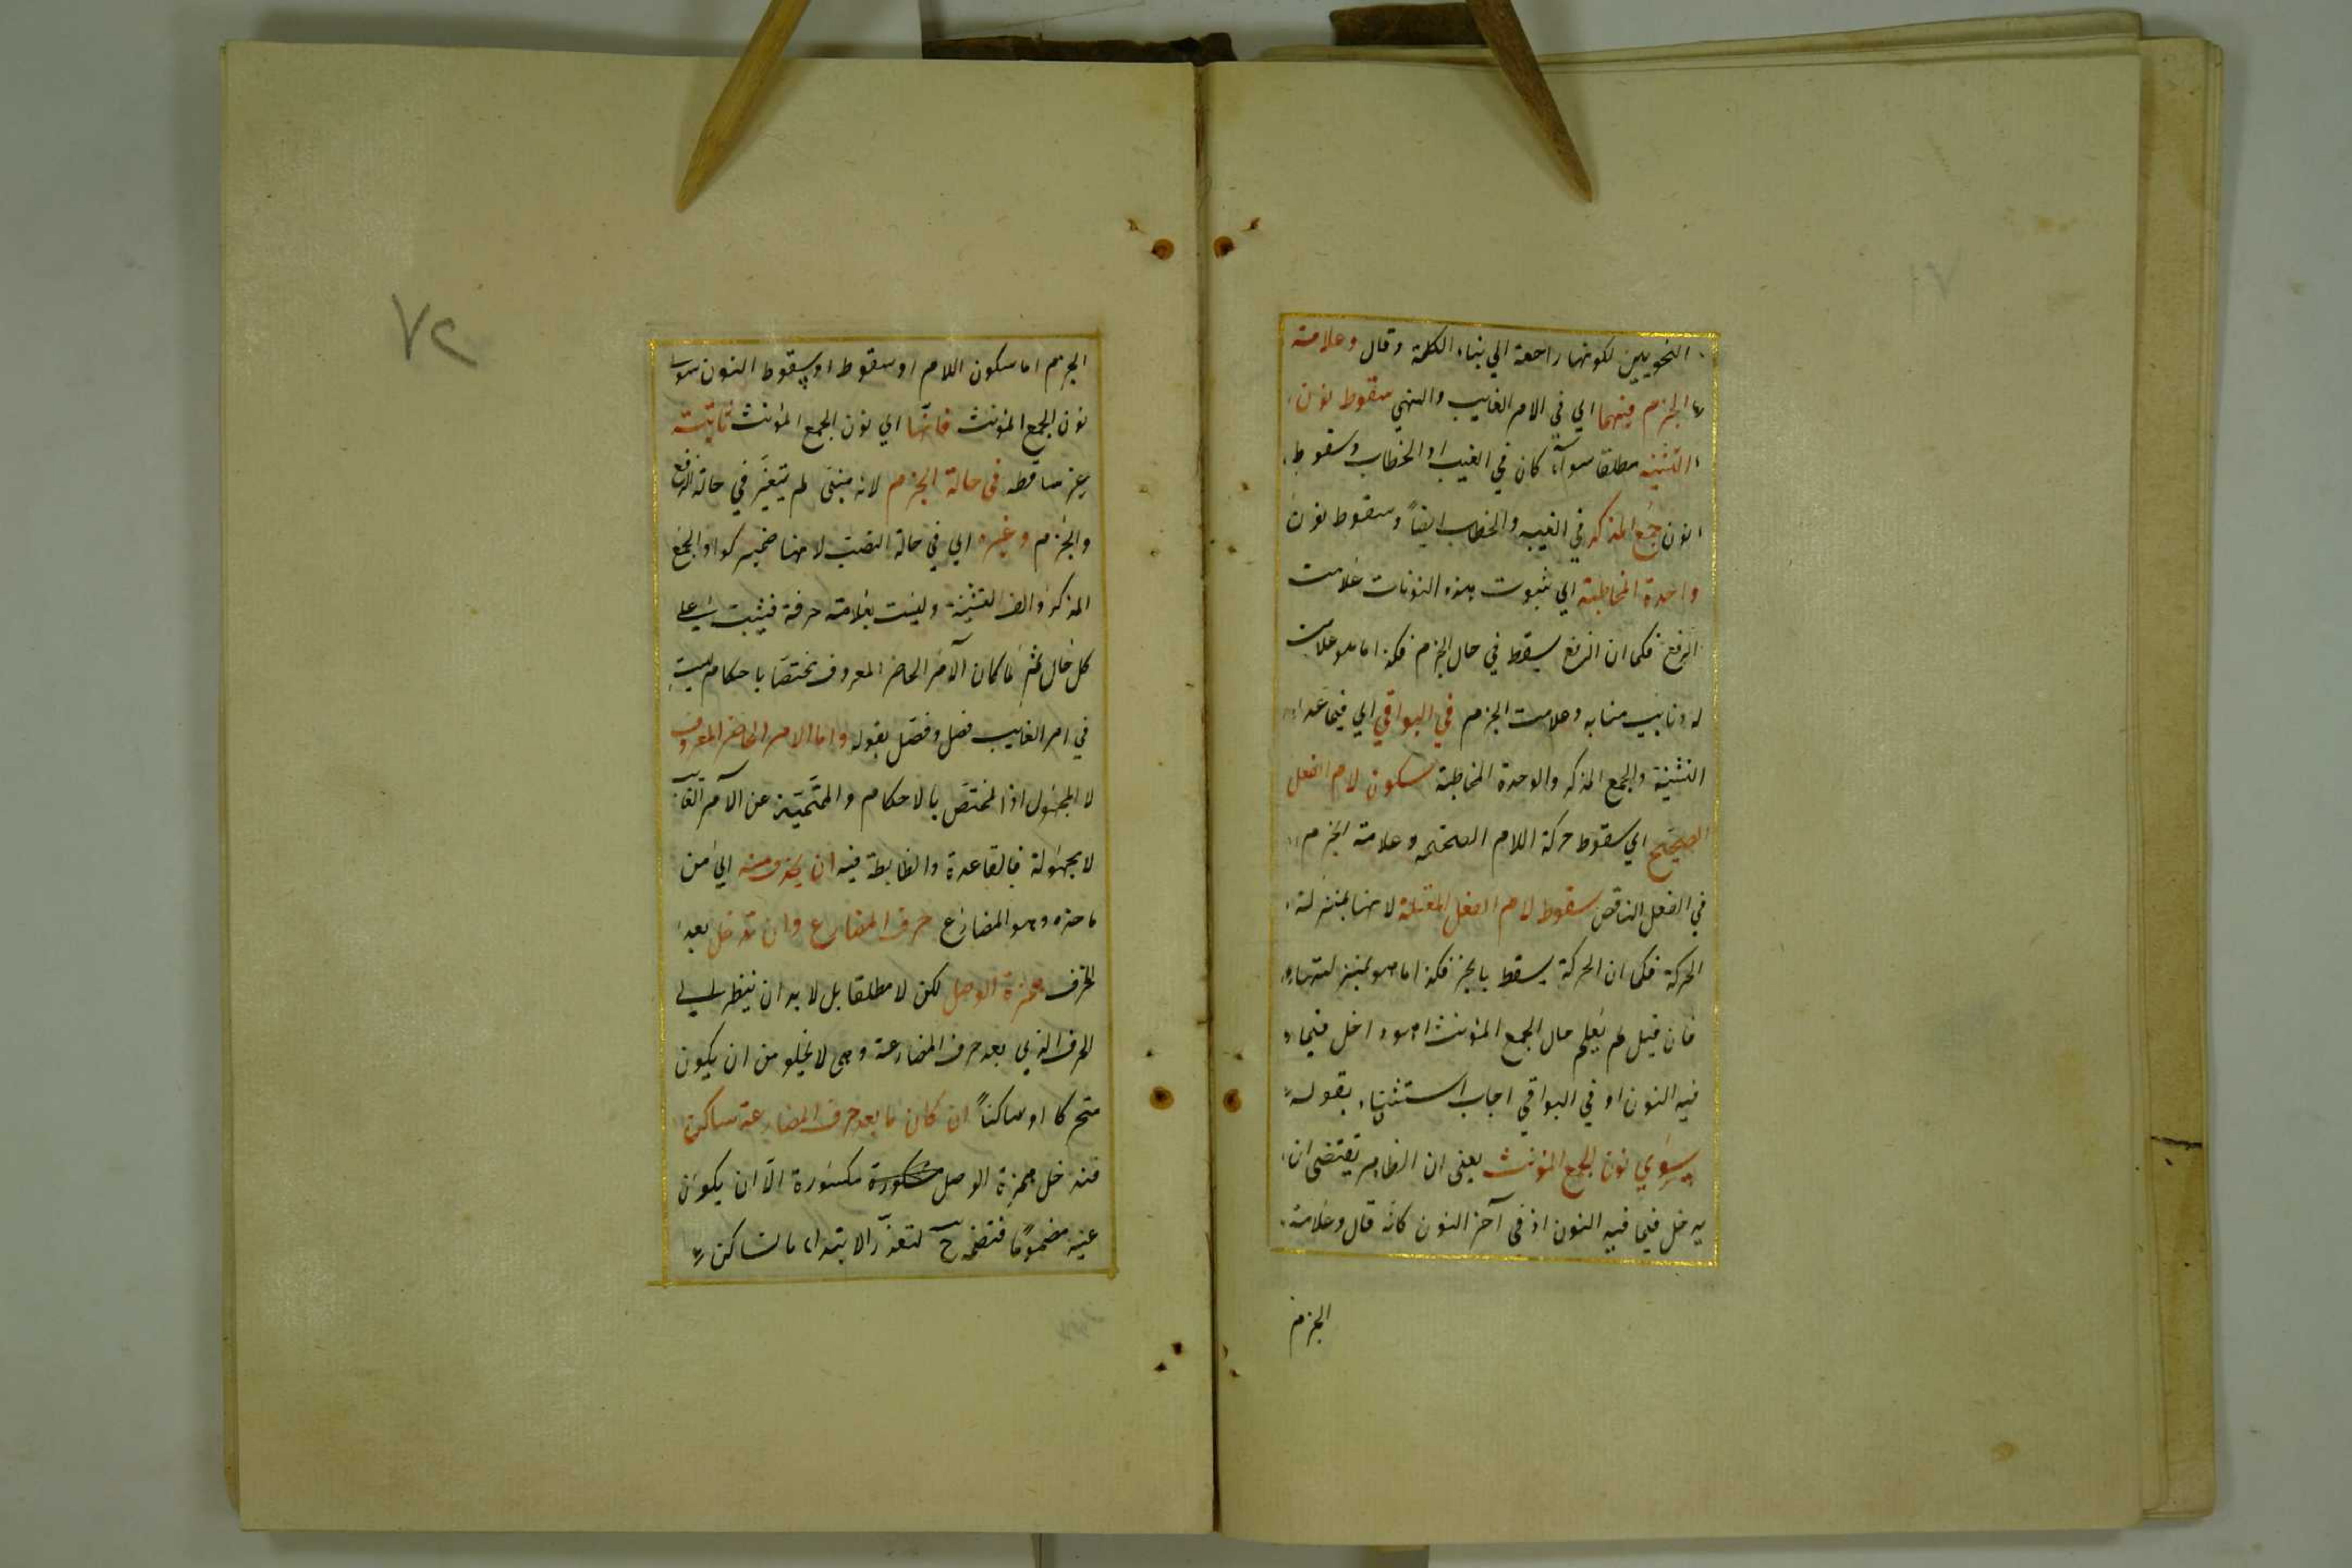 النحويين لكونها راجعة الي بناء الكلمة وقال وعلامة
الجزم فيهما اي في الامر الغايب والنهي سقوط نون
التثنية مطلقا سوآء كان في الغيب او الخطاب وسقوط
نون جمع المذكر في الغيبه والخطاب ايضاً وسقوط نون
واحدة المخاطبة اي ثبوت هذه النونات علامت
الرفع فكما ان الرفع يسقط في حال الجزم فكذا ما هو علامت
له ونايب منابه وعلامت الجزم في البواقي اي فيما عدا
التثنية والجمع المذكر والوحدة المخاطبة سكون لام الفعل
الصحيح اي سقوط حركة اللام الصحيحه وعلامة الجزم
في الفعل الناقص سقوط لام الفعل المعتلة لانها بمنزلة
الحركة فكما ان الحركة يسقط بالجزم فكذا ما هو بمنزلتها
فان قيل لم يعلم حال الجمع المؤنث اهو داخل فيما
فيه النون او في البواقي اجاب استثناء بقوله
سوي نون الجمع المؤنث يعني ان الظاهر يقتضى ان
يدخل فيما فيه النون اذ في آخر النون كانه قال وعلامة
الجزم
الجزم اما سكون اللام او سقوط او سقوط النون سوى
نون الجمع المؤنث فانها اي نون الجمع المؤنث ثابتة
غير ساقطه في حالة الجزم لانه مبنى لم يتغير في حالة الرفع
والجزم وغيره اي في حالة النصب لانها ضمير كواو الجمع
المذكر والف التثنية وليست بعلامة حرفة فيثبت على
كل حال ثم لما كان الآمر الحاضر المعروف مختصّا باحكام ليست
في امر الغايب فصل وفصّل بقوله واما الامر الحاضر المعروف
لا المجهول اذ المختص بالاحكام والمتميّز عن الآمر الغآيب
لا مجهولة فالقاعدة والظابطة فيه ان يحذف منه اي من
حاضره وهو المضارع حرف المضارع وان تدخل بعد
الحرف همزة الوصل لكن لا مطلقا بل لا بد ان ينظر الى
الحرف الذي بعد حرف المضارعة وهى لا يخلو من ان يكون
متحركا او ساكناً ان كان ما بعد حرف المضارعة ساكن
فتدخل همزة الوصل مكسورة الّا ان يكون
عينه مضموماً فتضمّ ح لتعذّر الابتداء بالساكن
٧٢